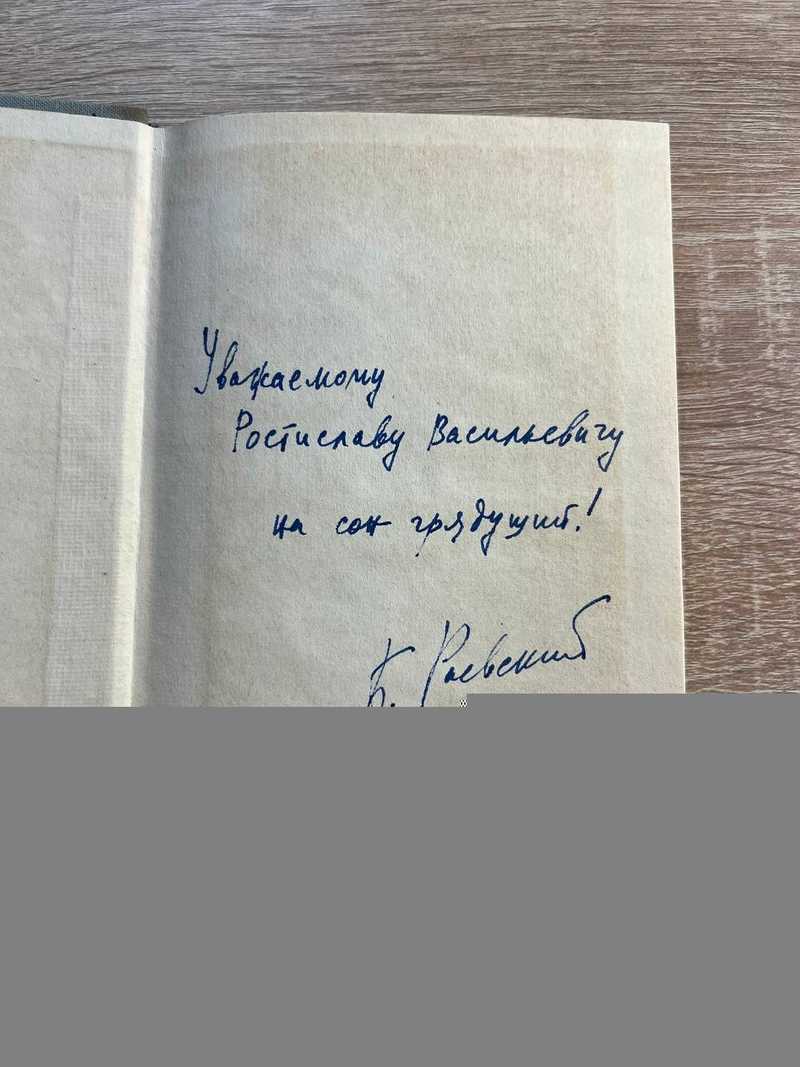 Уважаемому
Ростиславу Васильевичу
на сон грядущий!
Б. Раевский